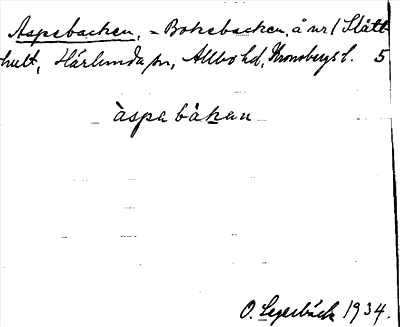 Aspebacken, = Bokebacken, å nr 1 Slätt-
hult, Härlunda sn, Allbo hd, Kronobergs l. 5
àspa bákan
O. Legerbäck 1934.